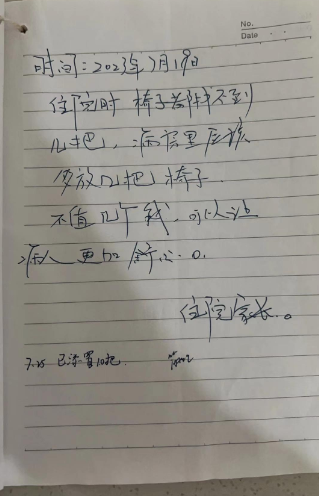 No.
Date
时间:2023年7月19日
住院时 椅子不到
几把,病房里应该
多放几把椅子
不值几个钱,可以让
病人更加舒心。
住院家长。
7.25 已添置10把.